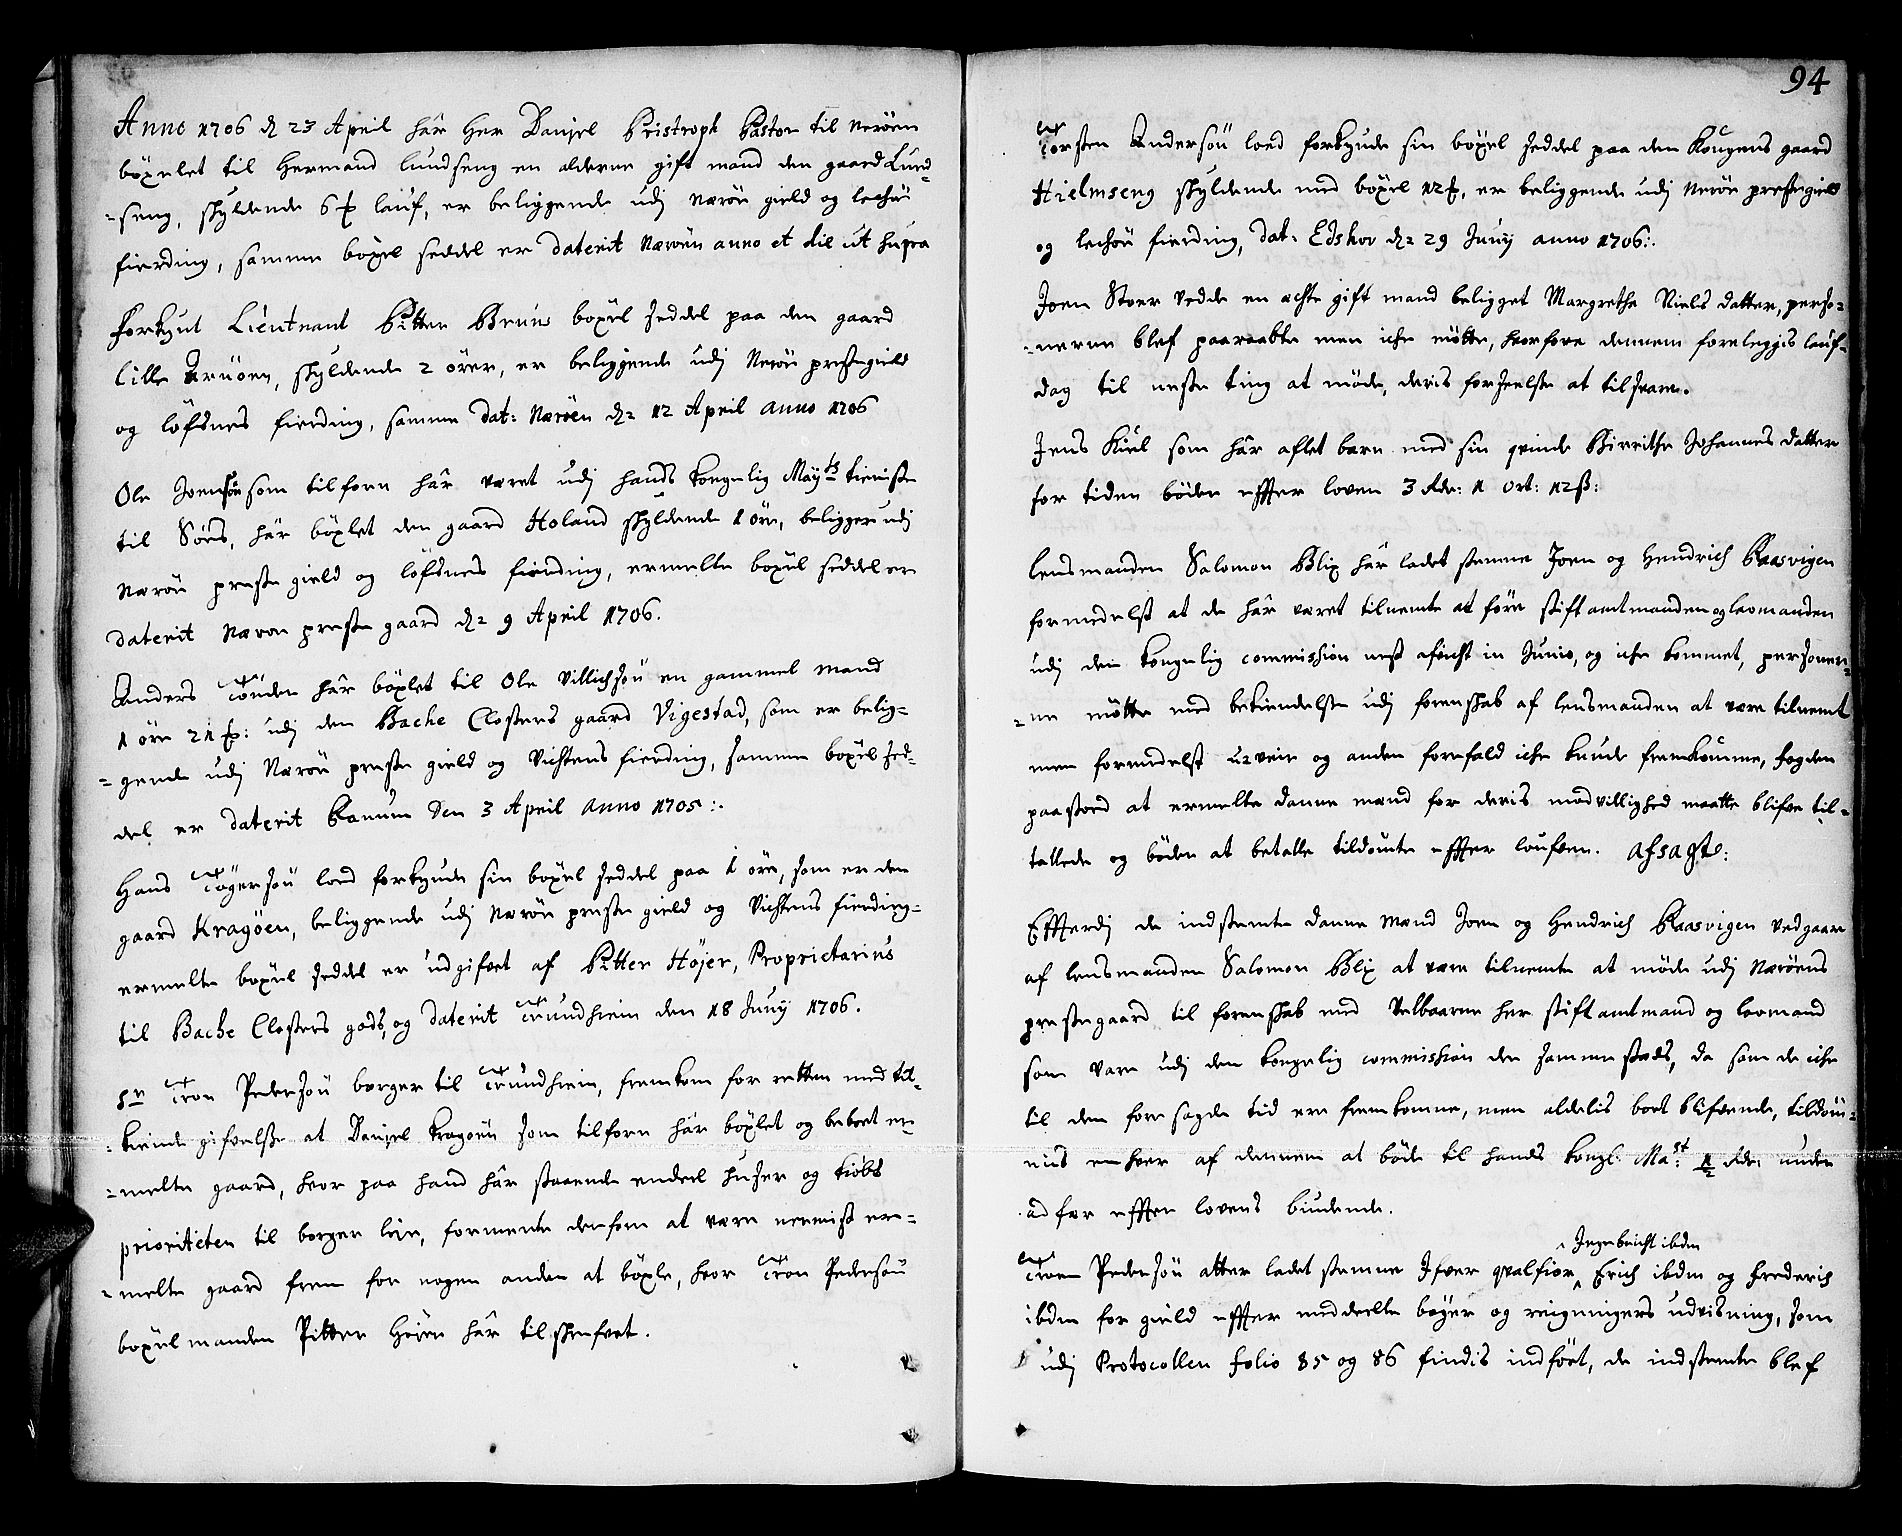 Anno 1706 d 23 April hår Her Danjel Pristroph Pastor til Nerøen
böxelet til Hermand lundseng en alderne gift mand den gaard Lund-
-seng, skyldende 6 ℔ lauf, er beliggende udj Nærøe gield og lechöe
fierding, samme böxel seddel er daterit Næröen anno et die ut supra
forkynt Lieutnant Pitter Bruns boxel seddel paa den gaard
Lille Gruöen, skyldende 2 örer, er beliggende udj Neröe prestegield
og löfsnes fierding, samme dat: Næröen d: 12 April anno 1706
Ole Joensön som tilforn hår været udj hands kongelig Mayts tieniste
til Söes, hår böxlet den gaard Holand skyldende 1 öre, beligger udj
Næröe preste gield og löfsnes fierding, ermelte boxel seddel er
daterit Næroe preste gaard d: 9 April 1706.
Anders Tönder hår böxlet til Ole Villichsön en gammel mand
1 öre 21 ℔: udj den Bache Closters gaard Vigestad, som er belig-
-gende udj Næröe preste gield og Vichtens fierding, samme boxel sed-
del er daterit Ranum den 3 April anno 1705:.
Hans Tögersön loed forkynde sin boxel seddel paa 1 öre, som er den
gaard Kragöen, beliggende udj Næröe preste gield og Vichtens fierding-
ermelte boxel seddel er udgifvet af Pitter Höjer, Proprietarius
til Bache Closters gods, og daterit Trundhiem den 18 Junij 1706.
Sr Tron Pedersön borger til Trundhiem, fremkom for retten med til-
-kiende gifvelsse at Danjel Kragöen som tilforn hår böxlet og beboet er-
-melte gaard, hvor paa hand hår staaende endeel huser og kiöbs
prioriteten til borger leie, formente derforre at være nermist er-
-melte gaard frem for nogen anden at böxle, hvor Tron Pedersön
boxel manden Pitter Höien hår tilskrefvet.
94
Torsten Andersön loed forkynde sin böxel seddel paa den Kongens gaard
Hielmseng skyldende med böxel 12 ℔, er beliggende udj Neröe prestegield
og lechöe fierding, dat: Edshov d: 29 Junij anno 1706:.
Joen Stoer vedde en echte gift mand beligget Margrethe Niels datter, perso-
-nerne blef paaraabte men iche mötte, hvorfore dennem foreleggis lauf-
dag til neste ting at möde, deris forseelse at tilsvare.
Jens Kiel som hår aflet barn med sin qvinde Birrithe Johannes datter
for tiden böder effter loven 3 Rdr: 1 ort: 12 ß:
Lensmanden Salomon Blix hår ladet stemme Joen og Hendrich Raasvigen
formedelst at de hår været tilnemte at före stiftamtmanden og lavmanden
udj den kongelig commission nest afvicht in Junio, og iche kommet, personer-
-ne mötte med bekiendelse udj forenskab af lensmanden at være tilnemt
men formedelst uveir og anden forefald iche kunde fremkomme, fogden
paastoed at ermelte danne mænd for deris modvillighed maatte blifve til-
tallede og böder at betalle tildömte effter loufven. Afsagt:
Effterdj de indstemte danne mænd Joen og Hendrich Raasvigen vedgaar
af lensmanden Salomon Blix at være tilnemte at möde udj Næröens
prestegaard til forenskab med Velbaarne her stiftamtmand og lavmand
som vare udj den kongelig commission der sammestæds, da som de iche
til dem fore sagde tid ere fremkomne, men aldelis bort blifvende, tildöm-
mis enhver af dennem at böde til hands kongl: Mast: 1/2 Rdr: uden
adfær effter lovens biudende.
Troen Pedersön atter ladet stemme Ifver qvalfior, ^Ingebricht ibdm Erich ibdm og Frederich
ibdm for gield effter meddeelte böger og reigningers udvisning, som
udj Protocollen folio 85 og 86 findis indfört, de indstemte blef